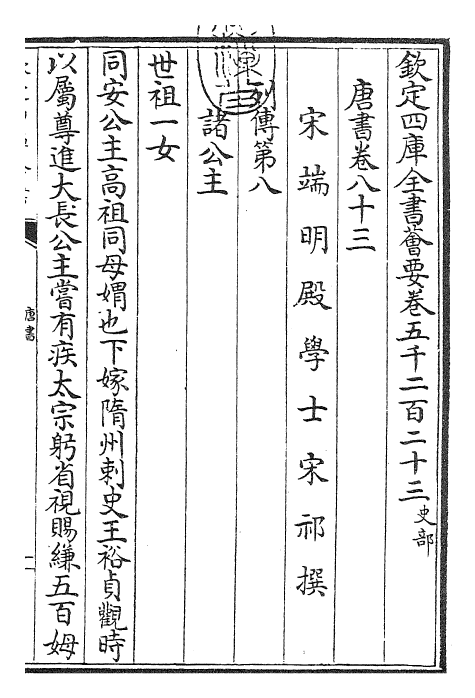 欽定四庫全書薈要卷五千二百二十三 史部
唐書卷八十三
宋端明殿學士宋祁撰
列傳第八
諸公主
世祖一女
同安公主高祖同母媦也下嫁隋州刺史王裕貞觀時
以屬尊進大長公主嘗有疾太宗躬省視賜縑五百姆
唐書